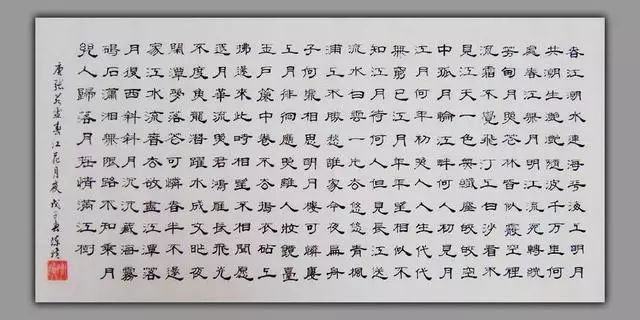 春江潮水連海平海上明月
共潮生灩灩随波千万里何
處春江無月明江流宛轉繞
芳甸月照花林皆似霰空裡
流霜不覺飛汀上白沙看不
見江天一色無纖塵皎皎空
中孤月輪江畔何人初見月
江月何年初照人人生代代
無窮已江月年年望相似不
知江月待何人但見長江送
流水白雲一片去悠悠青楓
浦上不勝愁誰家今夜扁舟
子何處相思明月樓可憐樓
上月徘徊應照離人妝鏡臺
玉戶簾中卷不去搗衣砧上
拂還來此時相望不相聞願
逐月華流照君鴻雁長飛光
不度魚龍潛躍水成文昨夜
閑潭夢落花可憐春半不還
家江水流春去欲盡江潭落
月復西斜斜月沉沉藏海霧
碣石瀟湘無限路不知乘月
幾人歸落月搖情滿江樹
唐張若虛春江花月夜戊子